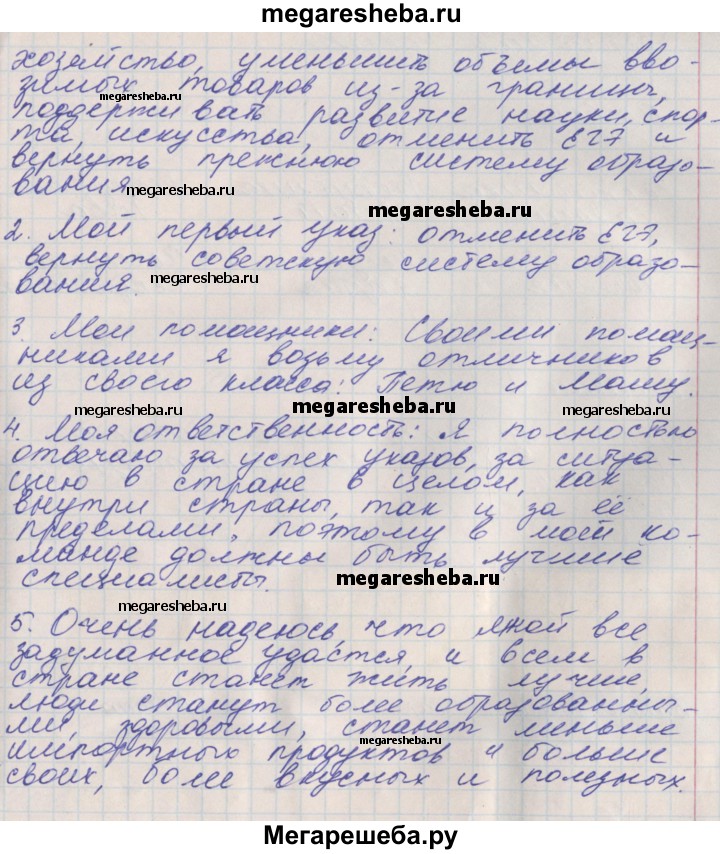 megaresheba.ru
хозяйство, уменьшить объёмы вво-
зимых товаров из-за границы,
megaresheba.ru
поддерживать развитие науки, спор-
та, искусства, отменить ЕГЭ и
вернуть прежнюю систему образо-
вания
megaresheba.ru
megaresheba.ru
2. Мой первый указ: отменить ЕГЭ,
вернуть советскую систему образо-
вания.
megaresheba.ru
3. Мои помощники: Своими помощ-
никами я возьму отличников
из своего класса: Петю и Машу.
megaresheba.ru
megaresheba.ru
megaresheba.ru
4. Моя ответственность: я полностью
отвечаю за успех указов, за ситуа-
цию в стране в целом, как
внутри страны, так и за её
пределами, поэтому в моей ко-
манде должны быть лучшие
специалисты.
megaresheba.ru
megaresheba.ru
5. Очень надеюсь, что мной все
задуманное удастся, и всем в
стране станет жить лучше,
люди станут более образованны-
ми, здоровыми, станет меньше
megaresheba.ru
импортных продуктов и больше
своих, более вкусных и полезных.
Мегарешеба.ру